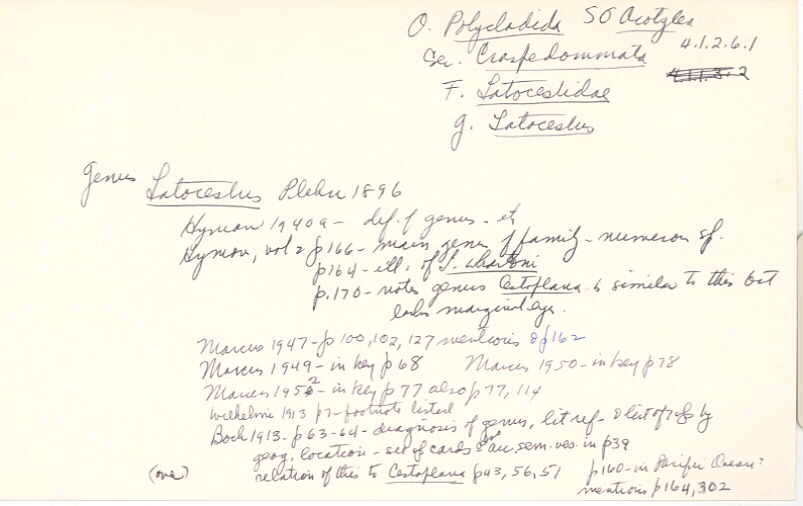 O. Polycladida SO Acotylea
Sec. Craspedommata 4.1.2.6.1
F. Latocestidae 4.1.1.3.2
g. Latocestus
Genus Latocestus Plehn 1896
Hyman 1940a - def. of genus - etc
Hyman, vol 2 p166 - main genus of family - numerous sp.
p164 - ill. of L. whartoni
p.170 - notes genus Cestoplana is similar to this but
lacks marginal eyes.
Marcus 1947 - p100, 102, 127 mentions & p162
Marcus 1949 - in key p68 Marcus 1950 - in key p78
Marcus 1952 - in key p77 also p77, 114
Wilhelmi 1913 p7 - footnote listed
Bock 1913 - p63-64 - diagnosis of genus, lit ref - & list of sp by
geog. location - set of cards & acc. sem. ves. in p39
relation of this to Cestoplana p43, 56, 51 p160 - in Pacific Ocean?
(over) mentions p164, 302